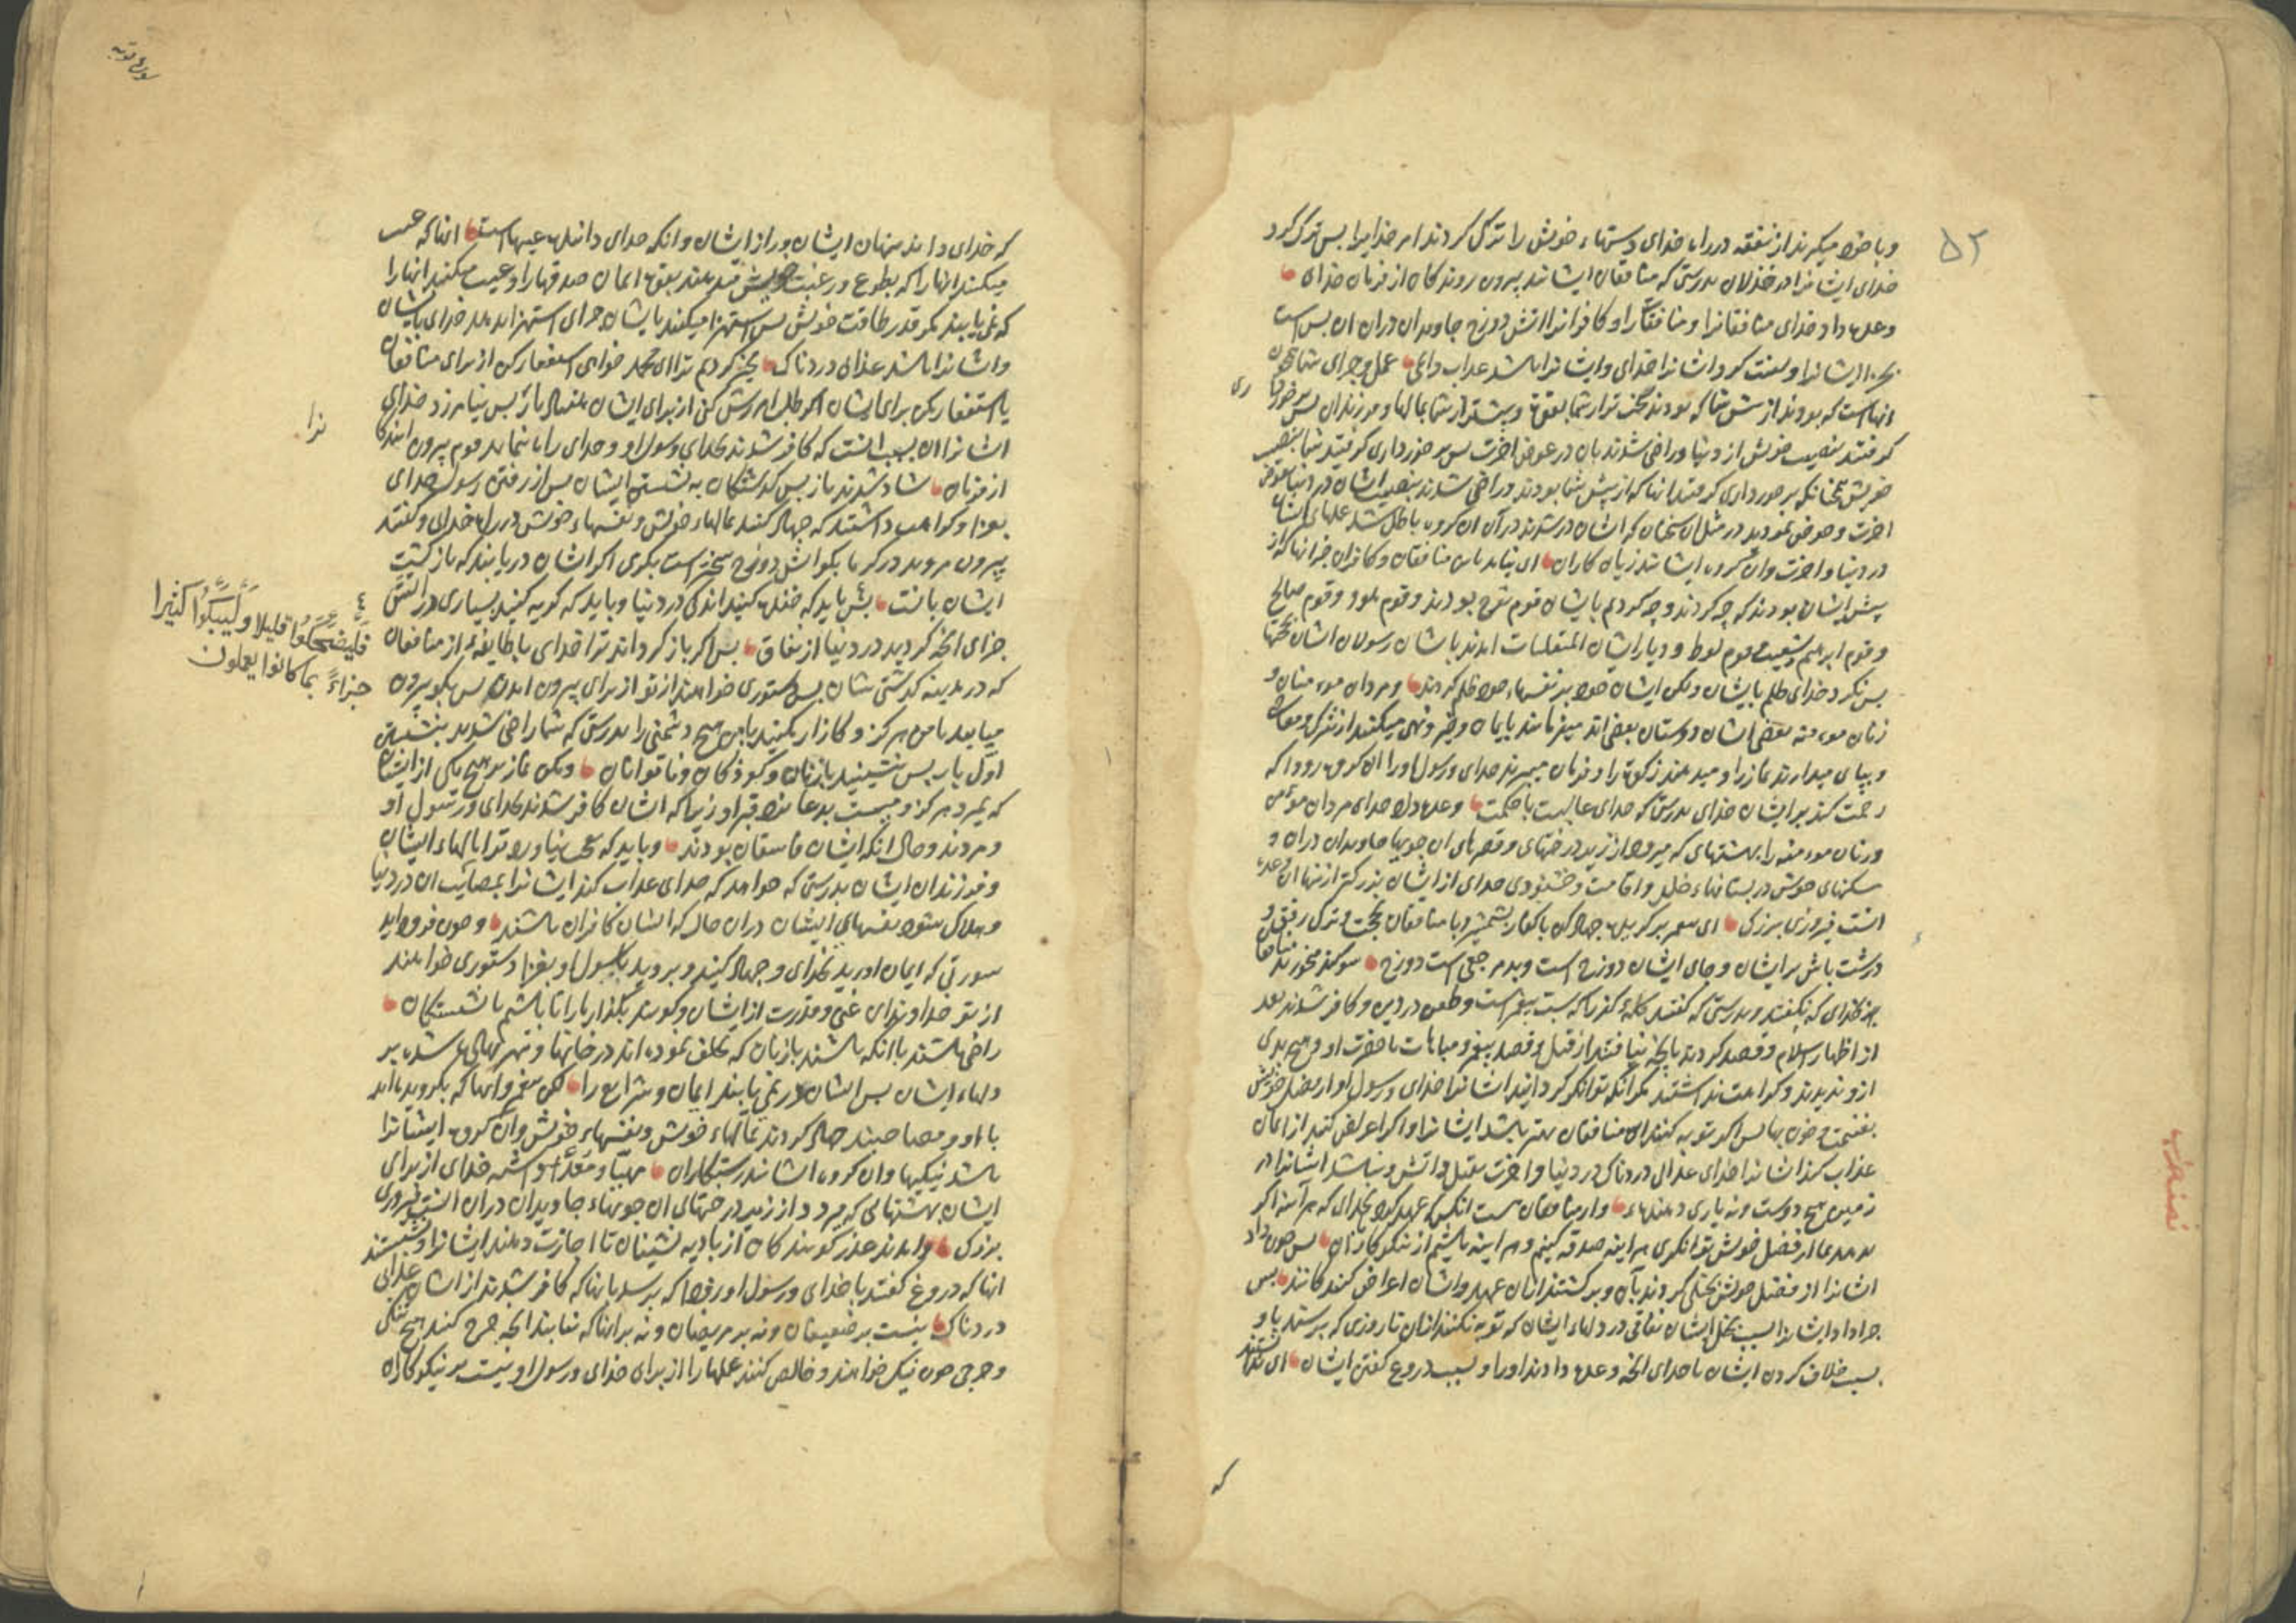 ۵۲
وبا خود میگیرند از نفقه در راه خدای دستهاء خویش را ترک کردند امر خدایرا پس ترک کرد
خدای ایشانرا در خذلان بدرستی که منافقان ایشانند بیرون روندکان از فرمان خدای
وعده داد خدای منافقانرا ومنافقاترا وکافرانرا اتش دوزخ جاویدان دران ان بس است
ایشانرا ولعنت کرد ایشانرا خدای وایشانرا باشد عذاب دایمی عمل وجزای شما همچون
انهاست که بودند از پیش شما که بودند سخت تر از شما بقوت وبیشتر از شما بمالها وفرزندان پس برخورداری
کرفتند بنصیب خویش از دنیا وراضی شدند بان در عوض اخرت پس برخورداری کرفتید شما بنصیب
خویش همچنانکه برخورداری کرفتند انها که از پیش شما بودند وراضی شدند بنصیب ایشان در دنیا بعوض
اخرت وخوض نمودید در مثل ان سخنان که ایشان در شدند در آن ان کروه باطل شد عملهای ایشان
در دنیا واخرت وان کروه ایشانند زیان کاران ای نیامد باین منافقان وکافران خبر انها که از
پیش ایشان بودند که چه کردند وچه کردم بایشان قوم نوح بودند وقوم هود وقوم صالح
وقوم ابرهیم وشعیب وقوم لوط ودیار ایشان المنقلبات امدند باشان رسولان ایشان بحجتها
پس نکرد خدای ظلم بایشان ولکن ایشان خود بر نفسهاء خود ظلم کردند ومردان مومنان و
زنان مومنه بعضی ایشان دوستان بعضی اند میفرمایند بایمان وخیر ونهی میکنند از شرک ومعاصی
وبپای میدارند نماز را ومیدهند زکوة را وفرمان میبرند خدای ورسول اورا ان کروه زود که
رحمت کند بر ایشان خدای بدرستی که خدای غالبست باحکمت وعده داد خدای مردان مومن
وزنان مومنه را بهشتهای که میرود از زیر درختهای وقصرهای ان جویها جاویدان دران و
مسکنهای خوش در بستانهاء خلد واقامت وخشنودی خدای از ایشان بزرکتر از نها ان وعده
انست فیروزی بزرک ای پیغمبر جهاد کن باکفار بشمشیر وبا منافقان بحجت وترک رفق و
درشت باش بر ایشان وجای ایشان دوزخ است وبد مرجعی است دوزخ سوکند میخورند منافقان
بخدای که نکفتند وبدرستی که کفتند کلمهٔ کفر را که سب پیغمبر است وطعن در دین وکافر شدند بعد
از اظهار اسلام وقصد کردند بانچه نیافتند از قتل وقصد پیغمبر ومباهات باحضرت او وهیچ بدی
ازو ندیدند وکراهت نداشتند مکر انکه توانکر کردانید ایشانرا خدای ورسول او از فضل خویش
بغنیمت وخون بها پس اکر توبه کنند این منافقان بهتر باشد ایشانرا واکر اعراض کنند از ایمان
عذاب کند ایشانرا خدای عذابی دردناک در دنیا واخرت بقتل واتش ونباشد ایشانرا در
زمین هیچ دوست ونه یاری دهنده واز منافقان هست انکس که عهد کرد بخدای که هر آینه اکر
بدهد ما از فضل خویش توانکری هر آینه صدقه کنیم وهر اینه باشیم از نیکوکاران پس چون داد
ایشانرا از فضل خویش بخیلی کردند بآن وبرکشتند از ان عهد وایشان اعراض کنندکانند پس
جزا داد ایشانرا بسبب بخل ایشان نفاقی در دلهاء ایشان که توبه نکنند از ان تا روزی که برسند باو
بسبب خلاف کردن ایشان با خدای انچه وعده دادند اورا وبسبب دروغ کفتن ایشان ای ندانستند
که
سورة توبه
که خدای داند پنهان ایشان وراز ایشان وانکه خدای داننده غیبهاست انها که عیب
میکنند انها را که بطوع ورغبت خویش میدهند بقوت ایمان صدقها را وعیب میکنند انها را
که نمی یابند مکر قدر طاقت خویش پس استهزا میکنند بایشان جزای استهزا بدهد خدای بایشان
وایشانرا باشد عذابی دردناک مخیر کردم ترا ای محمد خواهی استغفار کن از برای منافقان
یا استغفار مکن برای ایشان اکر طلب امرزش کنی از برای ایشان هفتاد بار پس نیامرزد خدای
ایشانرا ان بسبب انست که کافر شدند بخدای ورسول او وخدای راه ننماید قوم بیرون ایندکانرا
از فرمان شاد شدند باز پس کذشتکان به نشستن ایشان پس از رفتن رسول خدای
بغزا وکراهت داشتند که جهاد کنند بمالهاء خویش ونفسهاء خویش در راه خدای وکفتند
بیرون مروید در کرما بکو اتش دوزخ سختر است بکرمی اکر ایشان دریابند که بازکشت
ایشان بانست پس باید که خنده کنید اندکی در دنیا وباید که کریه کنید بسیاری در اتش
فَلْيَضْحَكُوا قليلا وَلْيَبْكُوا كثيرا
جزاءً بما كانوا يعملون
جزای انچه کردید در دنیا از نفاق پس اکر باز کرداند ترا خدای باطایفهٔ از منافقان
که در مدینه کذشتی شان پس دستوری خواهند از تو از برای بیرون امدن پس بکو بیرون
میایید با من هرکز وکارزار مکنید با من هیچ دشمنی را بدرستی که شما راضی شدید بنشستن
اول بار پس بنشینید بازنان وکودکان وناتوانان ومکن نماز بر هیچ یکی از ایشان
که بمیرد هرکز ومایست بدعا نزد قبر او زیرا که ایشان کافر شدند بخدای ورسول او
ومردند وحال انکه ایشان فاسقان بودند وباید که بعجب نیاورد ترا مالهاء ایشان
وفرزندان ایشان بدرستی که خواهد که خدای عذاب کند ایشانرا بمصائب ان در دنیا
وهلاک شود نفسهای ایشان دران حال که ایشان کافران باشند وچون فرود اید
سورتی که ایمان اورید بخدای وجهاد کنید وبروید بارسول او بغزا دستوری خواهند
از تو خداوندان غنی وقدرت از ایشان وکویند بکذار ما را تا باشیم با نشستکان
راضی باشند باانکه باشند بازنان که تخلف نموده اند در خانها ومهر نهاده شده بر
دلهاء ایشان پس ایشان در نمی یابند ایمان وشرایع را لکن پیغمبر وانها که بکرویده اند
با او ومصاحبند جهاد کردند بمالهاء خویش ونفسهاء خویش وان کروه ایشانرا
باشد نیکیها وان کروه ایشانند رستکاران مهیا ومعد داشته خدای از برای
ایشان بهشتهایی که میرود از زیر درختهای ان جویهاء جاویدان دران انست فیروزی
بزرک وامدند عذر کویندکان از بادیه نشینان تا اجازت دهند ایشانرا وبنشستند
انها که دروغ کفتند باخدای ورسول او زود که برسد بانها که کافر شدند از ایشان عذابی
دردناک نیست بر ضعیفان ونه بر مریضان ونه بر انها که نمیابند انچه خرج کنند هیچ تنکی
وحرجی چون نیک خواهند وخالص کنند عملها را از برای خدای ورسول او نیست بر نیکوکاران